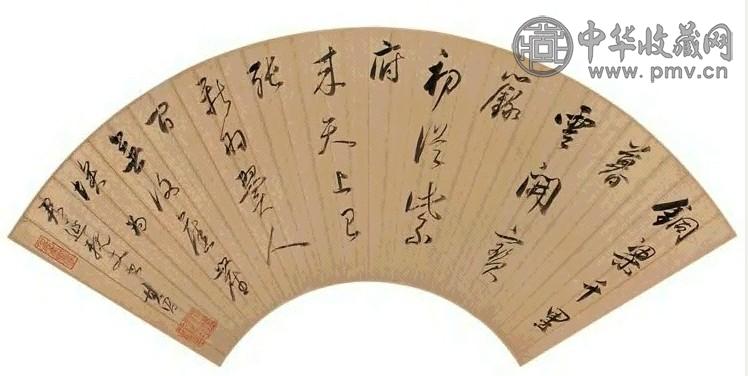 中华收藏网
www.pmv.cn
銅梁千里
暮
雲開寶
籙
初從紫
府
来天上已
張
新羽翼人
間
無復舊塵
埃為